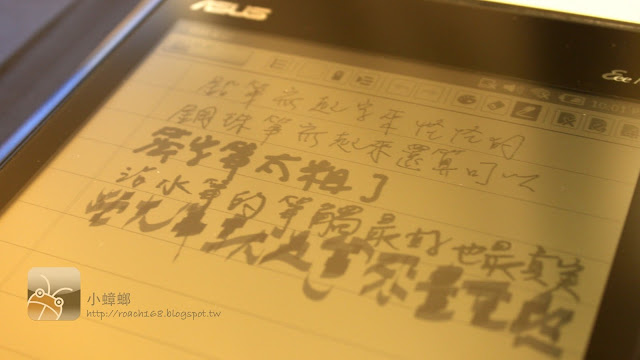 ASUS
Eee
10:01
鉛筆寫起字來怪怪的
鋼珠筆寫起來還算可以
原子筆太粗了
沾水筆的筆觸最好也最真實
螢光筆
小蟑螂
http://roach168.blogspot.tw